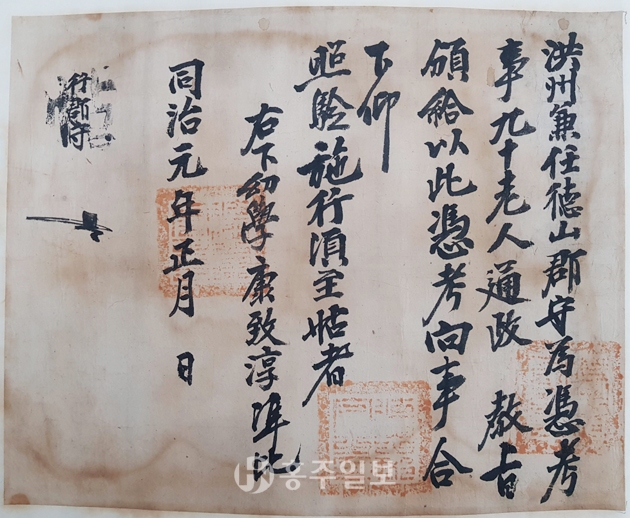 洪州兼任德山郡守爲憑考
事九十老人通政 教旨
頒給以此憑考向事合
下仰
照驗施行須至帖者
右下幼學康致淳準此
同治元年正月 日
行郡守
홍주일보